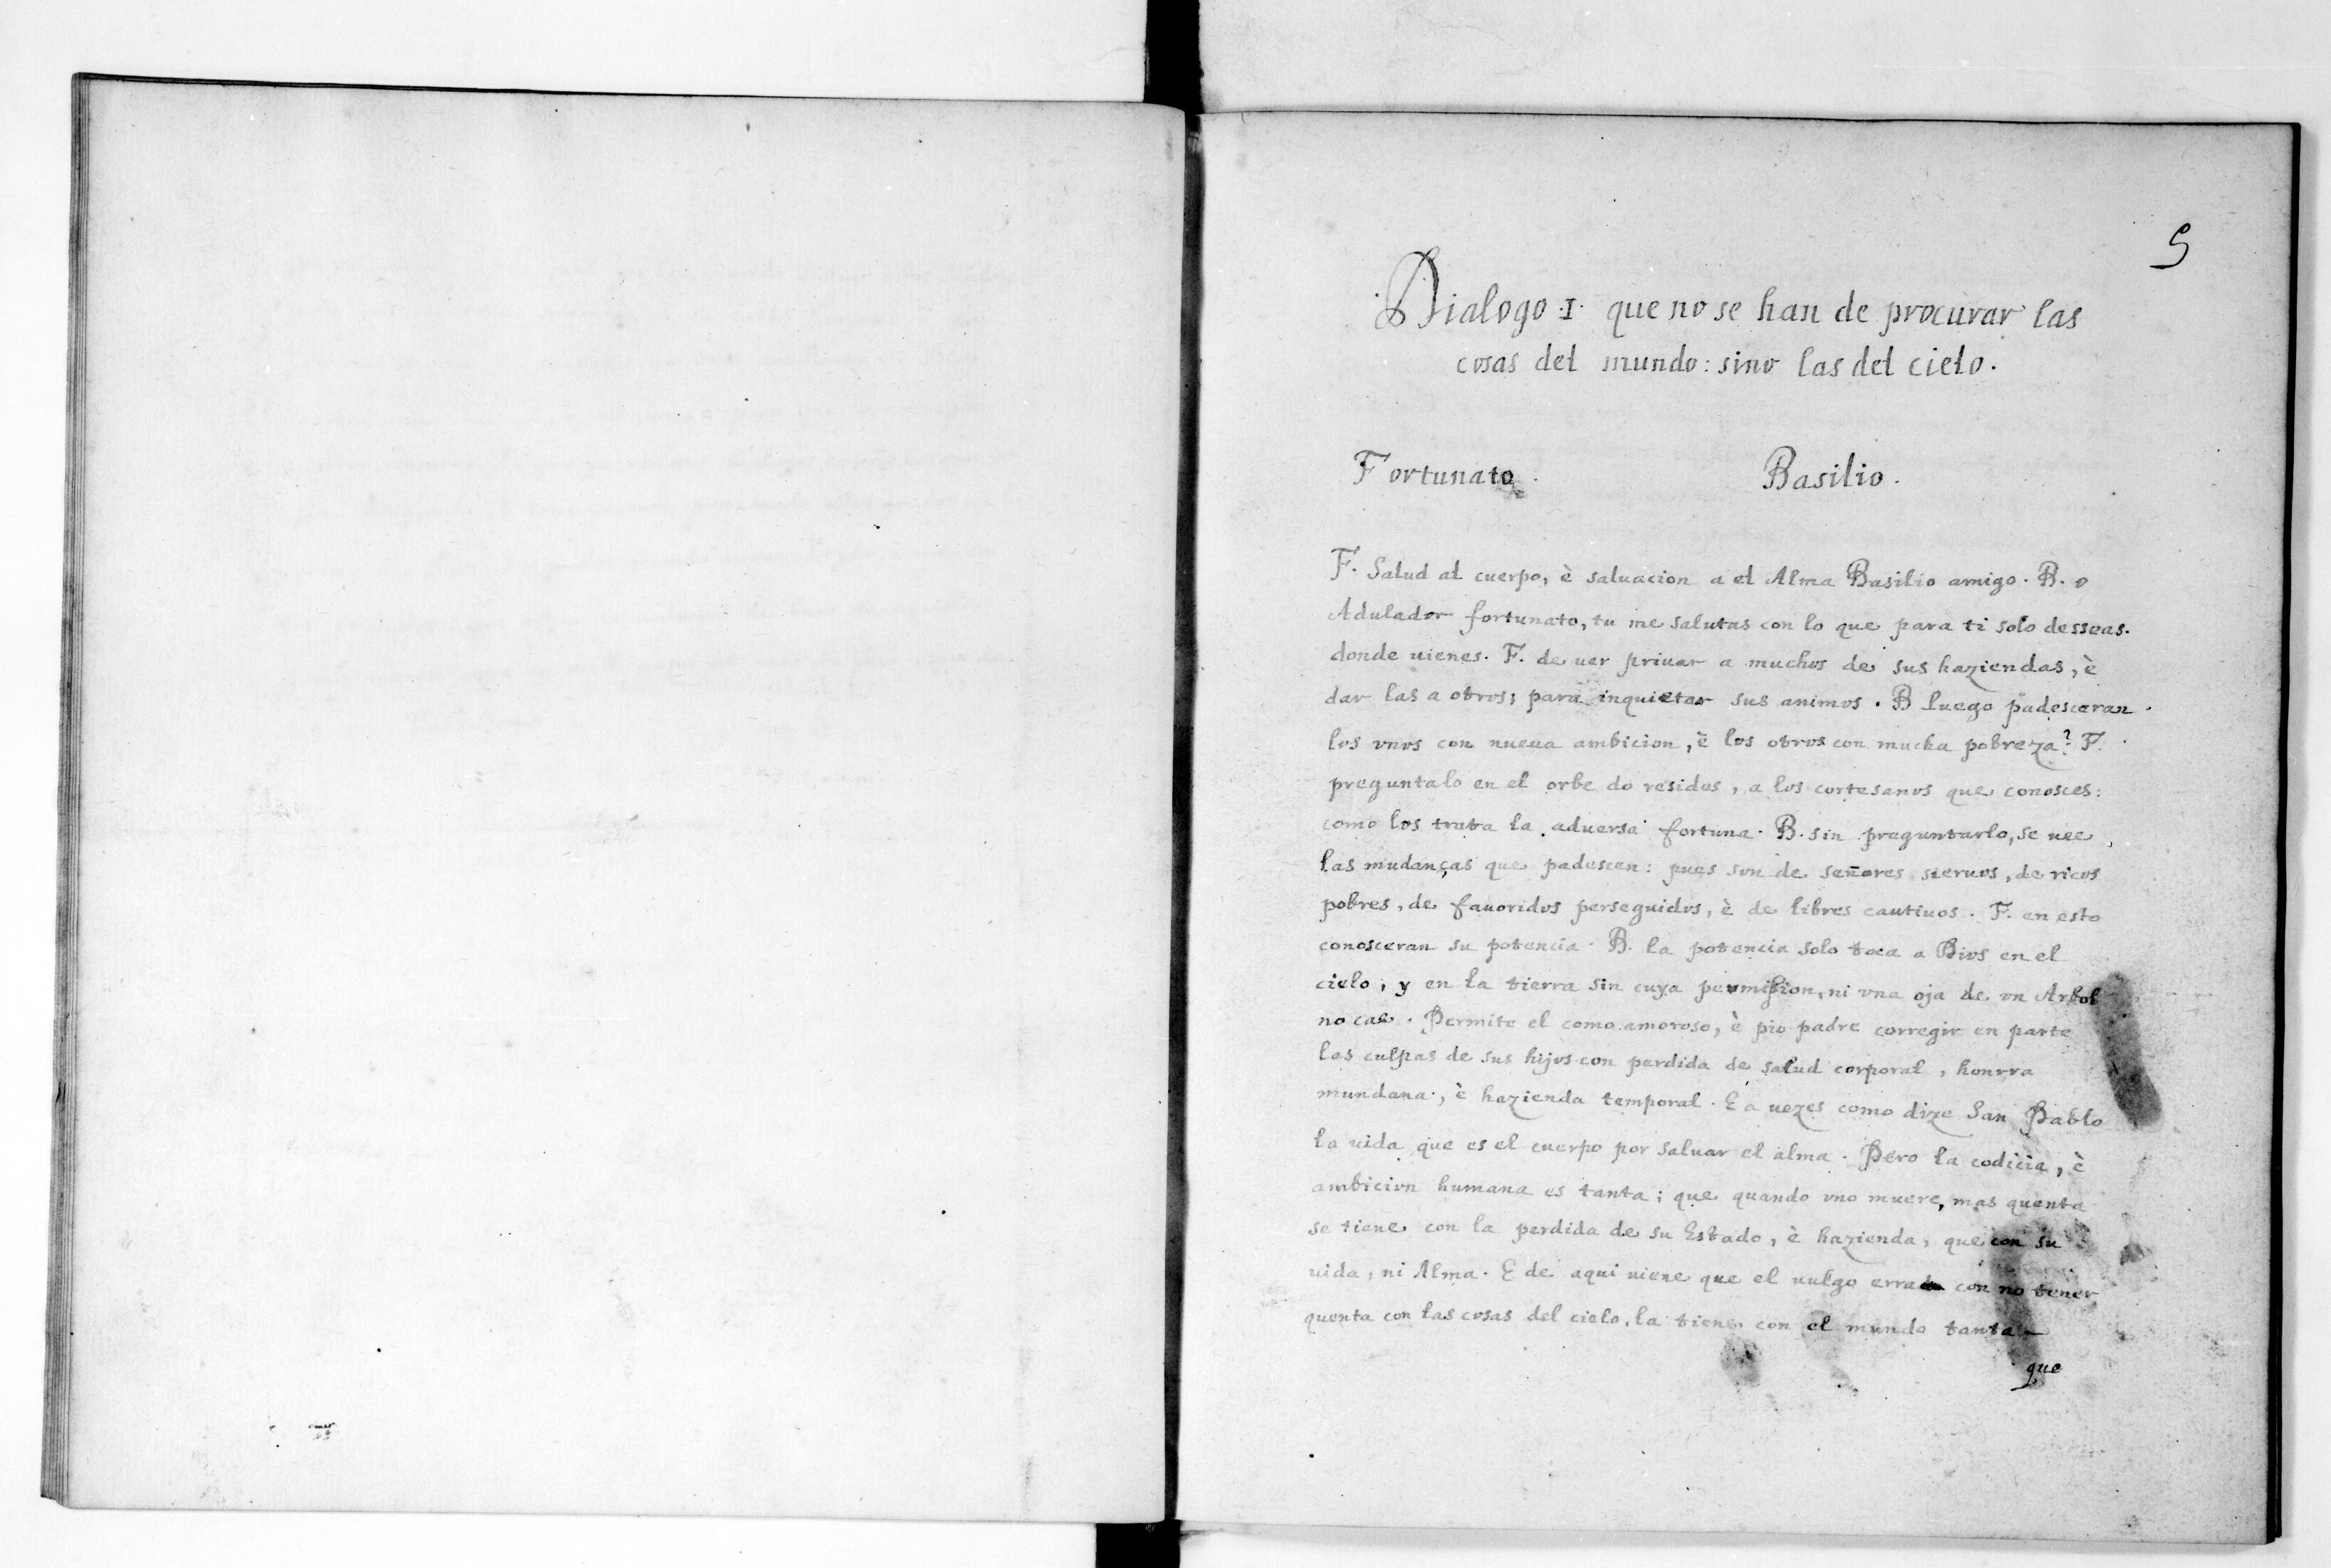 5
Dialogo .I. que no se han de procurar las
cosas del mundo: sino las del cielo.
Fortunato. Basilio.
F. Salud al cuerpo, è saluacion a el Alma Basilio amigo. B. o
Adulador fortunato, tu me salutas con lo que para ti solo desseas.
donde uienes. F. de uer priuar a muchos de sus haziendas, è
dar las a otros; para inquietar sus animos. B luego padesceran
los vnos con nueua ambicion, è los otros con mucha pobreza? F.
preguntalo en el orbe do resides, a los cortesanos que conosces:
como los trata la aduersa fortuna. B. sin preguntarlo, se uee
las mudanças que padescen: pues son de señores sieruos, de ricos
pobres, de fauoridos perseguidos, è de libres cautiuos. F. en esto
conosceran su potencia. B. la potencia solo toca a Dios en el
cielo; y en la tierra sin cuya permission, ni vna oja de vn Arbol
no cae. Permite el como amoroso, è pio padre corregir en parte
las culpas de sus hijos con perdida de salud corporal, honrra
mundana, è hazienda temporal. E a uezes como dize San Pablo
la uida que es el cuerpo por saluar el alma. Pero la codicia, è
ambicion humana es tanta; que quando vno muere, mas quenta
se tiene con la perdida de su Estado, è hazienda, que con su
uida, ni Alma. E de aqui uiene que el uulgo errado con no tener
quenta con las cosas del cielo, la tiene con el mundo tanta
que